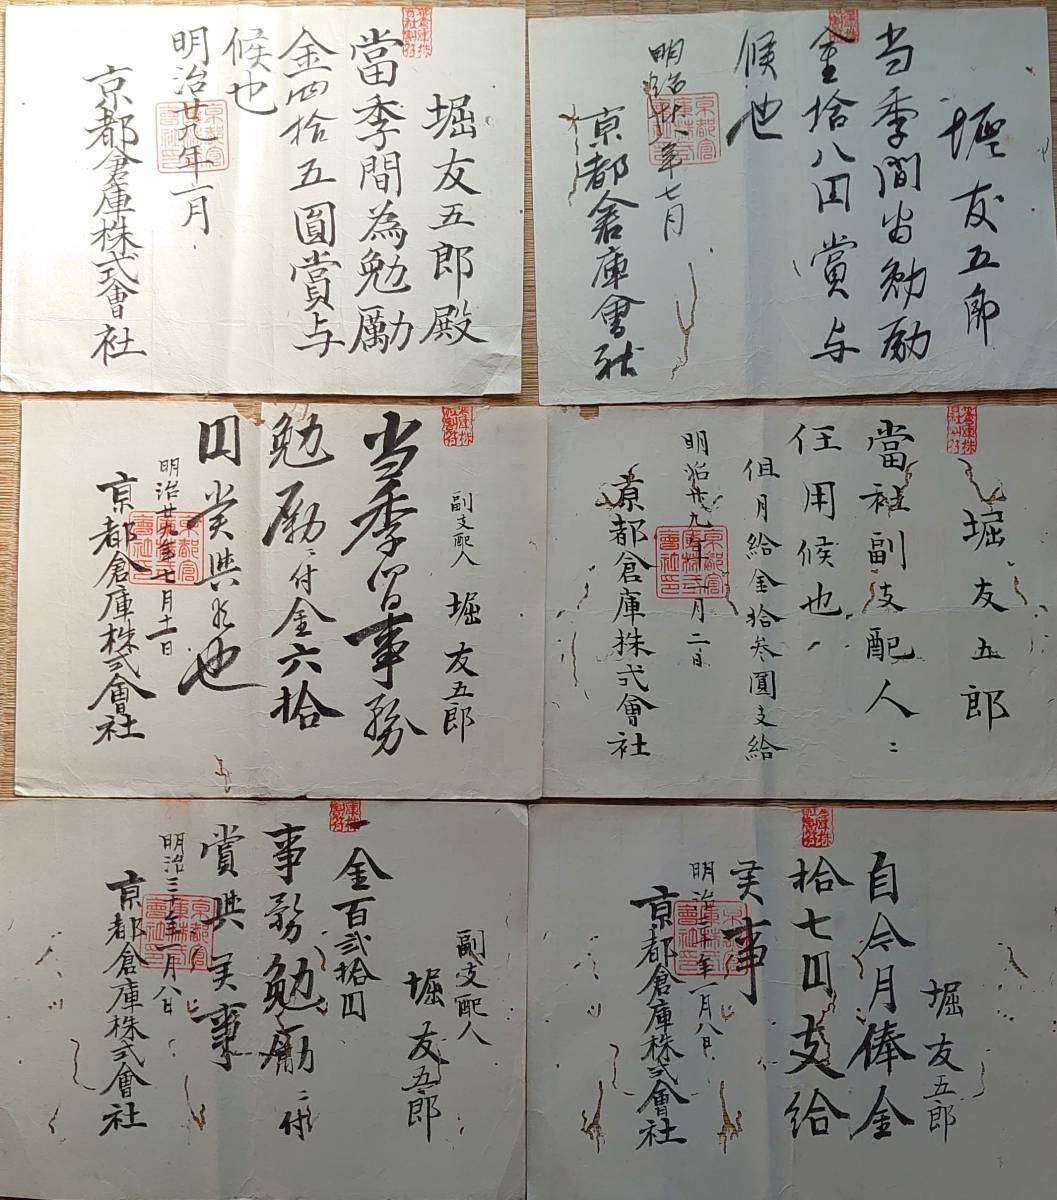 堀友五郎
当季間為勉励
金拾八円賞与
候也
明治廿八年七月
京都倉庫會社
堀友五郎殿
當季間為勉勵
金四拾五圓賞与
候也
明治廿九年一月
京都倉庫株式會社
堀友五郎
當社副支配人ニ
任用候也
但月給金拾参圓支給
明治廿九年一月二日
京都倉庫株式會社
副支配人 堀友五郎
当季間事務
勉励ニ付金六拾
円賞與候也
明治廿九年七月十一日
京都倉庫株式會社
堀友五郎
自今月俸金
拾七円支給
候事
明治三十年一月八日
京都倉庫株式會社
副支配人
堀友五郎
一金百弐拾円
事務勉励ニ付
賞與候事
明治三十年一月八日
京都倉庫株式會社